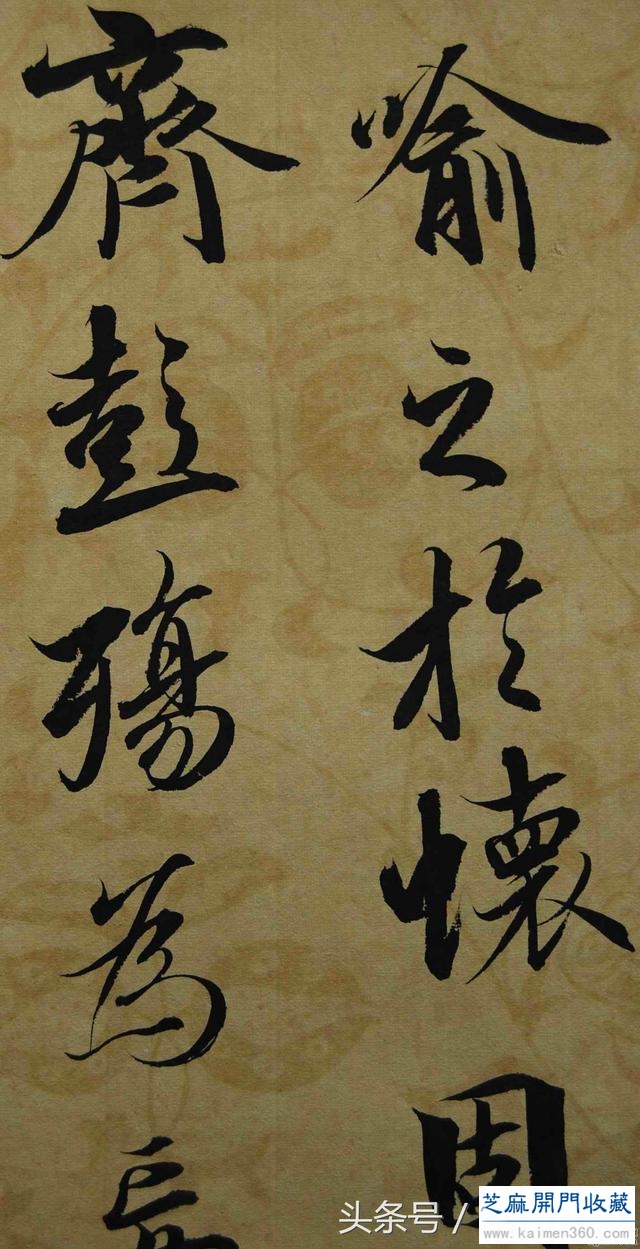 喻之於懷固
齊彭殤為妄
头条号/
芝麻開門收藏
www.kaimen360.com